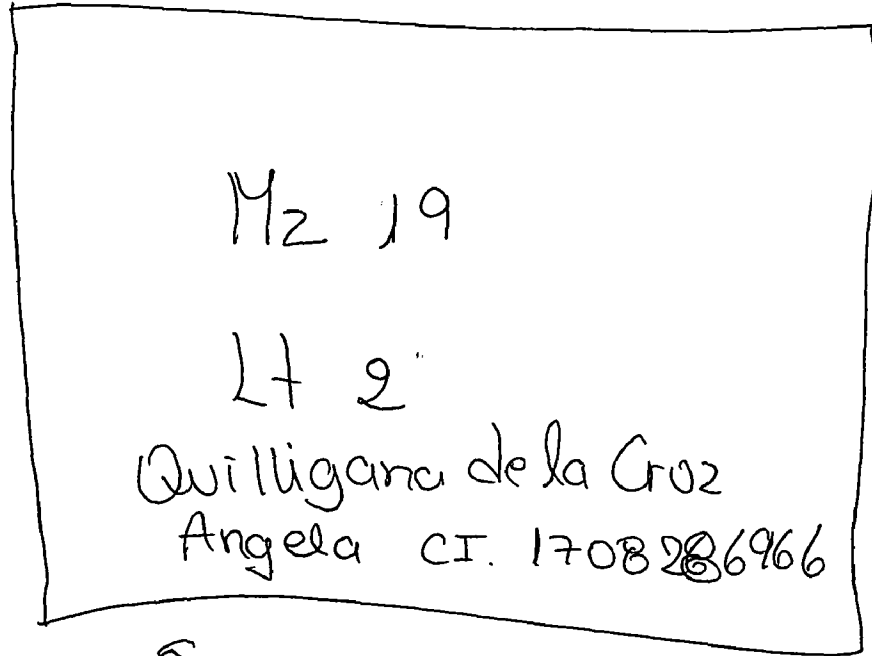 Mz 19
Lt 2
Quilligana de la Cruz
Angela CI. 1708286966